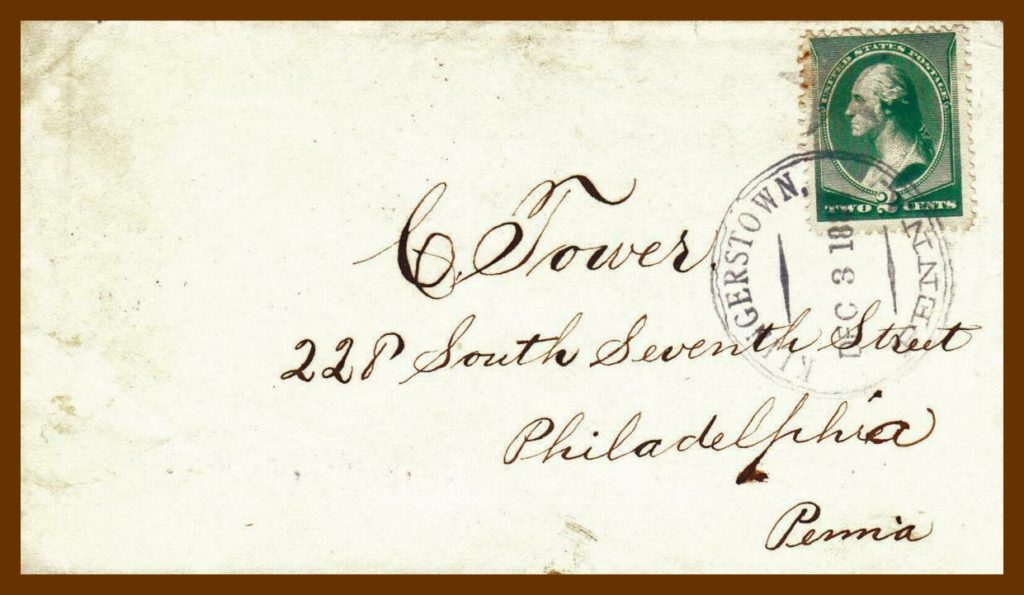 UNITED STATES POSTAGE
TWO 2 CENTS
KLINGERSTOWN,
DEC 3 18
C. Tower.
228 South Seventh Street
Philadelphia
Penn'a